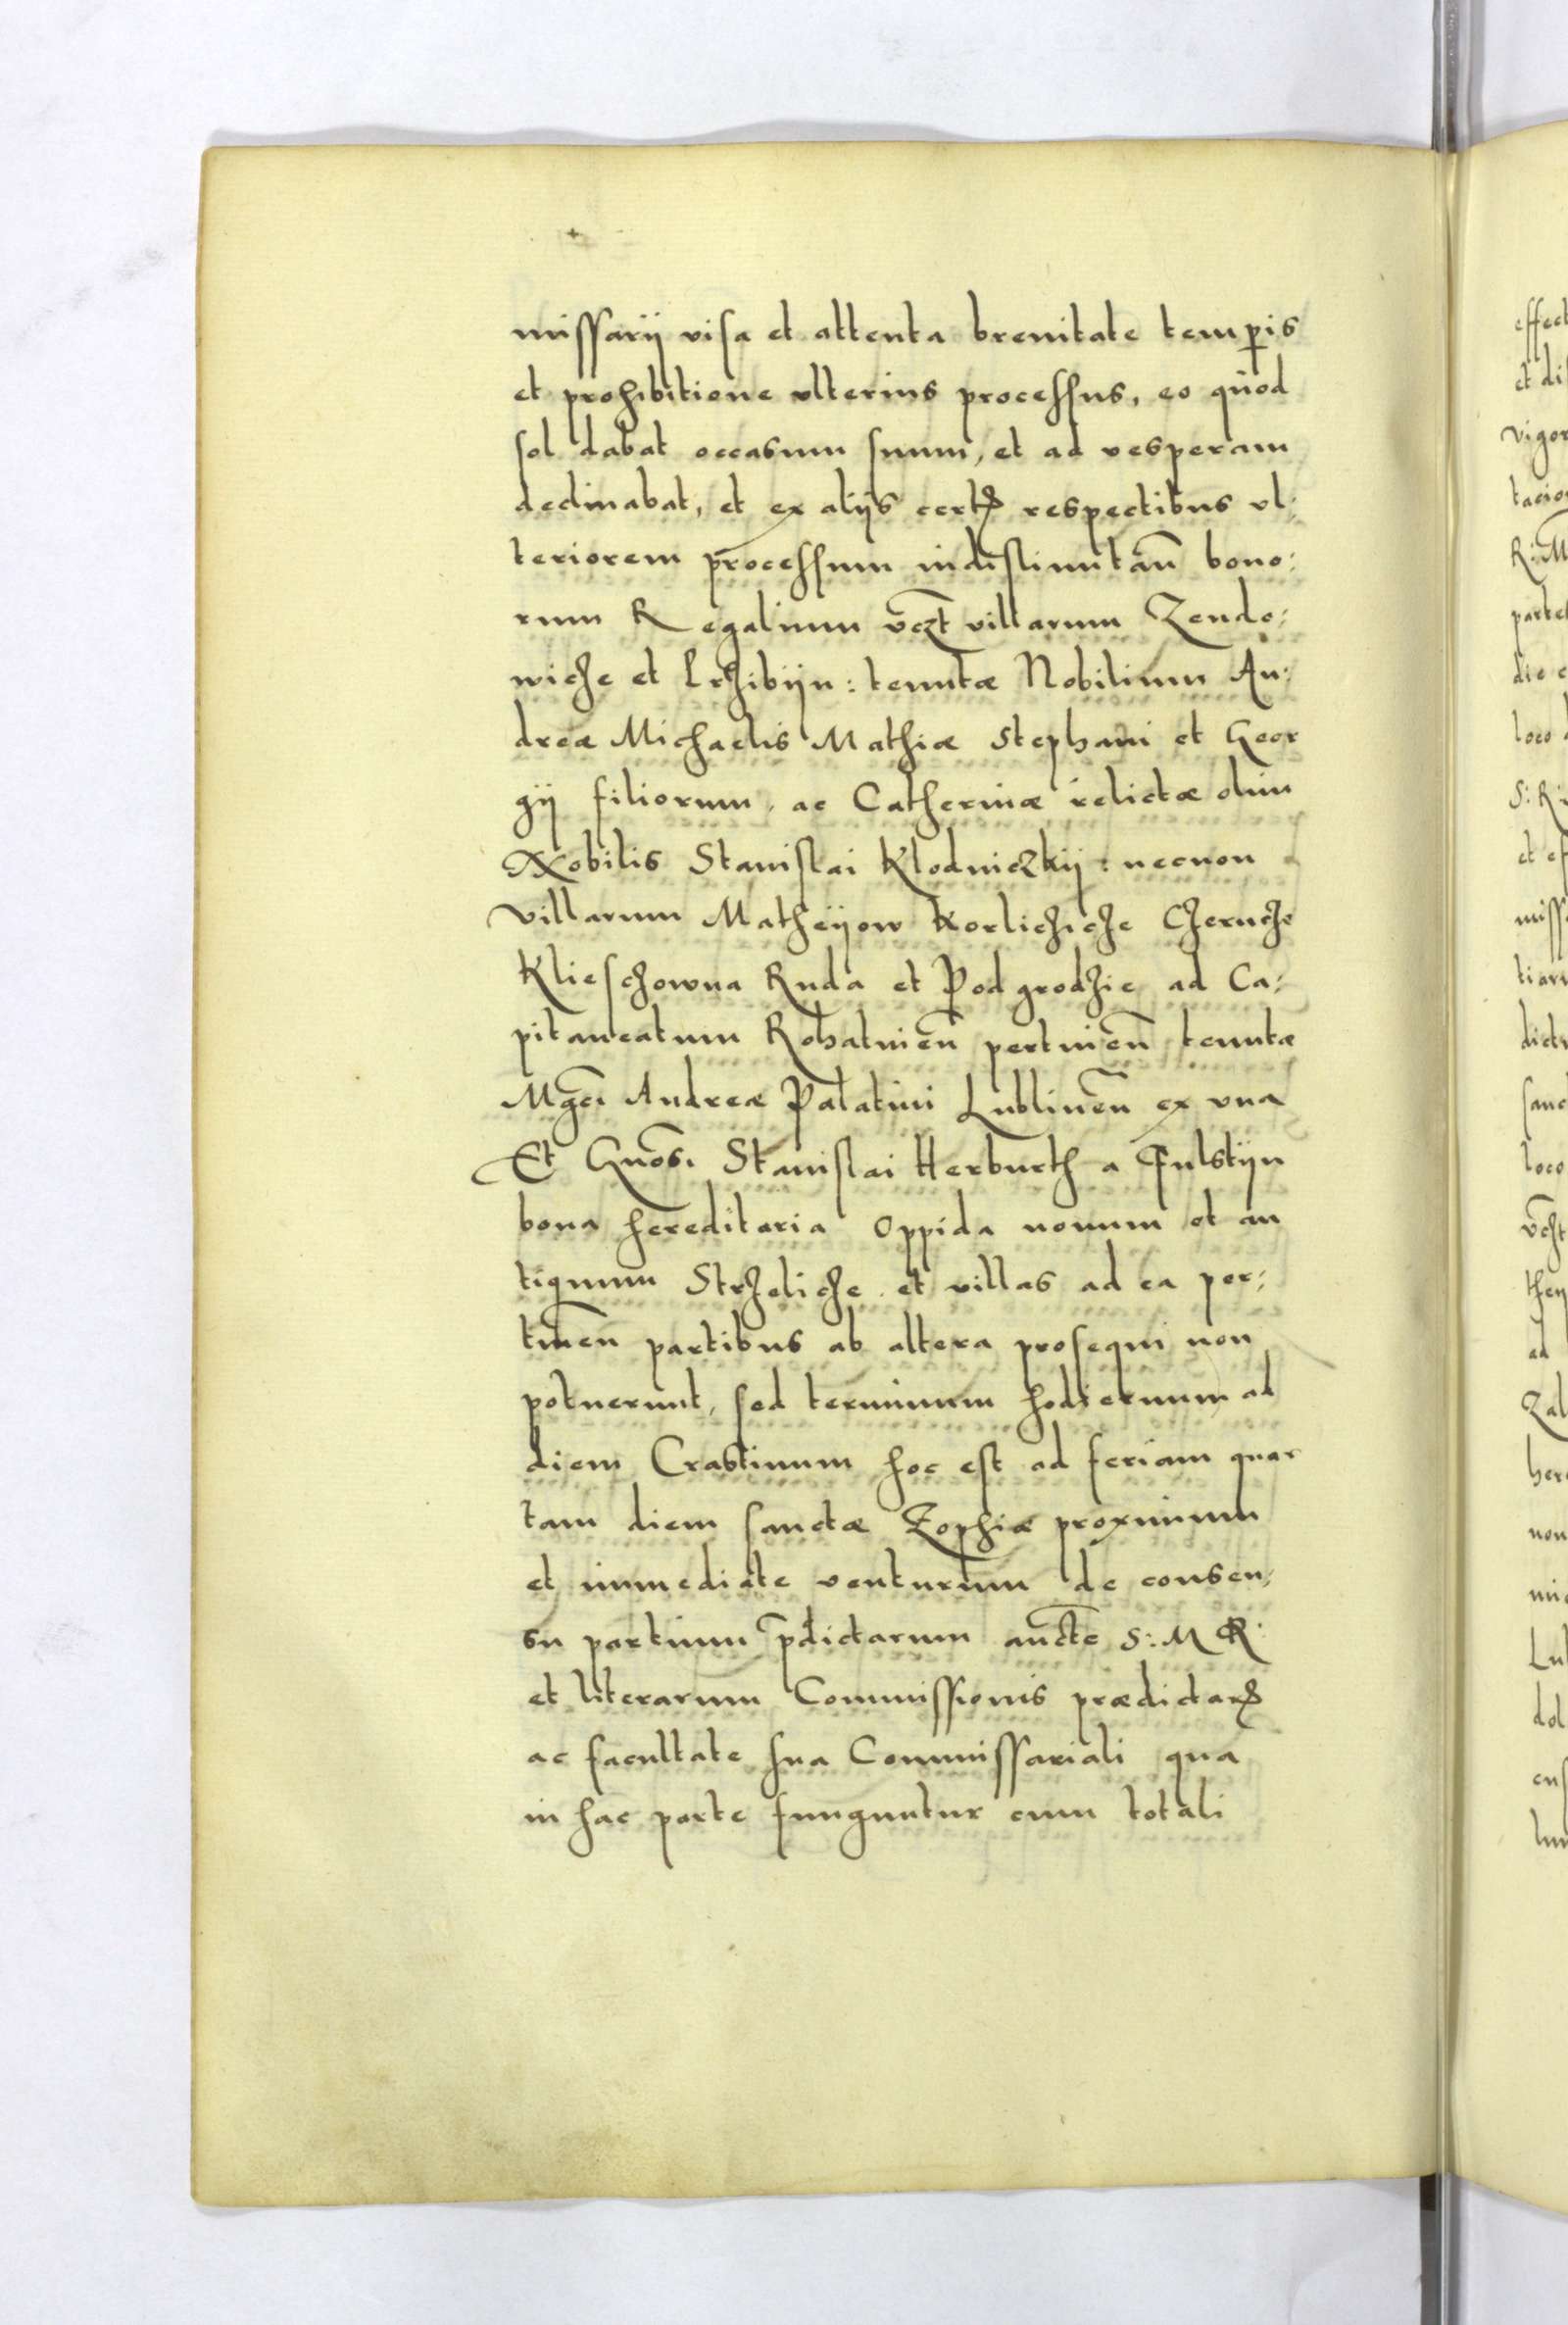 missarij visa et attenta breuitate temꝑis
et prohibitione vlterius processus, eo quod
sol dabat occasum suum, et ad vesperam
declinabat, et ex alijs certꝭ respectibus vl:
teriorem processum in distinctiaū bono:
rum Regalium vcꝫt villarum Zendo:
wicze et Lrzibijn: tenutæ Nobilium An:
dreæ Michaelis Mathiæ Stephani et Geor
gij filiorum, ac Catherinæ relictæ olim
Nobilis Stanislai Klodniczkij: necnon
villarum Matheijow Korliczicze Czercze
Klieschowna Ruda et Podgrodzie ad Ca:
pitaneatum Rohatinen̄ pertinen̄ tenutæ
Mgc̄i Andreæ Palatini Lublinen̄ ex vna
Et Gn̄osi Stanislai Herburth a Fulstijn
bona hereditaria oppida nouum et an
tiquum Strzelicze et villas ad ea per:
tinen̄ partibus ab altera prosequi non
potuerunt, sed terminum hodiernum ad
diem Crastinum hoc est ad feriam quar
tam diem sanctæ Zophiæ proximum
et immediate venturum de consen:
su partium p̄dictarum auct̄e S: M R:
et literarum Commissionis prædictarꝭ
ac facultate sua Commissariali qua
in hac parte funguntur cum totali
effect
et di
vigor
tacio
R: M
partes
die c
loco
S: R
et ef
miss
tiar
dict
sanc
loco
vcꝫt
they
ad
Zal
her
non
mi
Lu
dol
cu